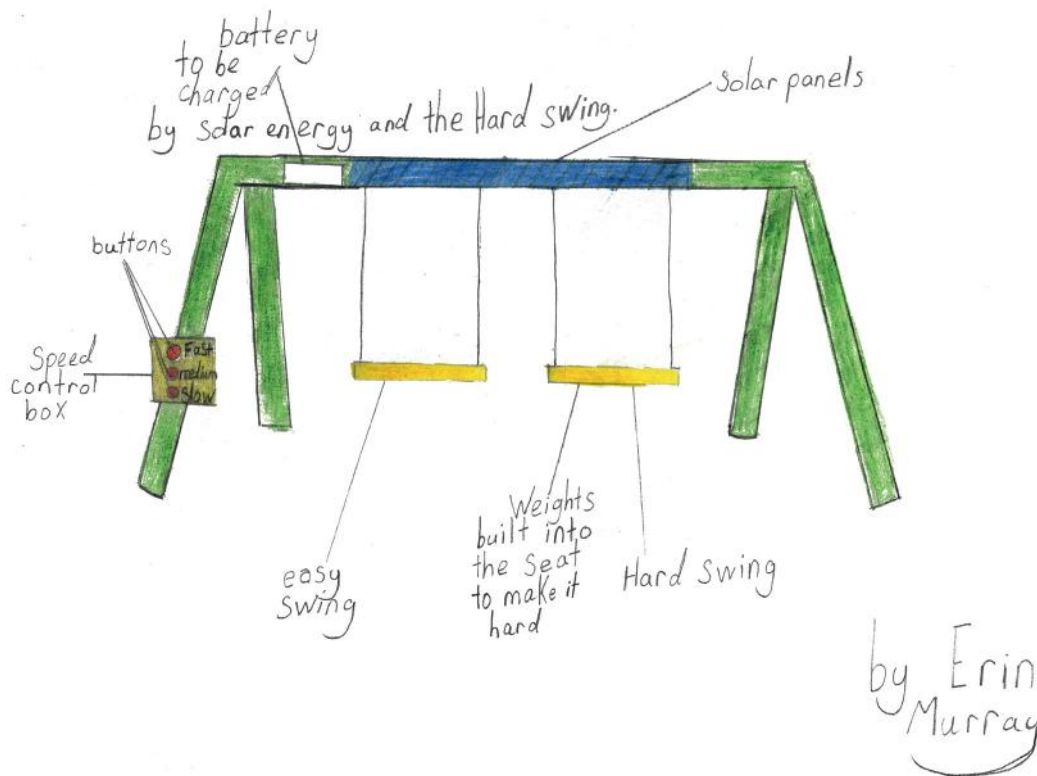 battery
to be
charged
by solar energy and the Hard swing.
Solar panels
buttons
Speed
control
box
Fast
medium
Slow
easy
swing
Weights
built into
the seat
to make it
hard
Hard Swing
by Erin
Murray